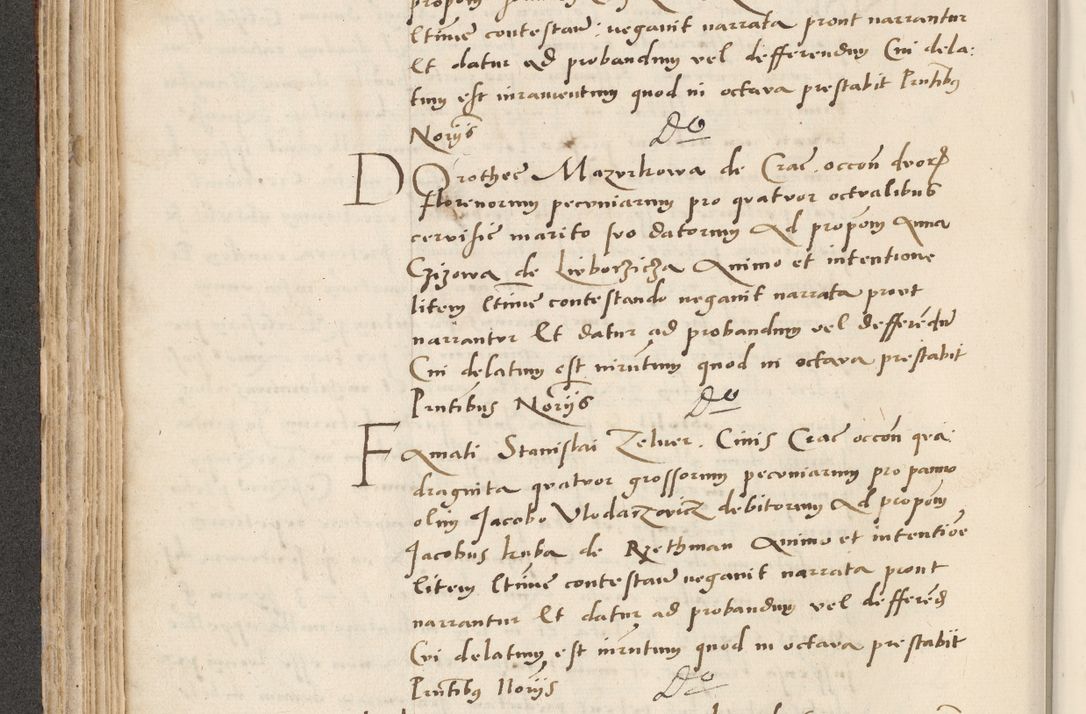 ltime contestan: negauit narrata prout narrantur
Et datur ad probandum vel defferendum Cui dela:
tum est iuramentum quod in octava prestabit Pnntibus
Noriis
Do
DOrothee Mazurkowa de Crac occon dvor
florenorum pecvniarum pro qvatvor octvalibus
cervisie marito svo datorum Ad propom Anna
Czizowa de Liwborzicza Animo et intentione
litem ltime contestando negauit narrata provt
narrantvr Et datur ad probandum vel defferendu
Cui delatum est iurutum quod in octava prestabit
Pnntibus Noriis
Do
FAmati Stanislai Zelner. Civis Crac occon qva:
draginta qvatvor grossorum pecvniarum pro panno
olim Jacobo Vlodarzowicz debitorum Ad propom
Jacobus kuba de Rzethman Animo et intentioe
litem ltime contestan negauit narrata prout
narrantur Et datur ad probandum vel defferend
Cvi delatum est iurutum quod in octava prestabit
Pnntibus Noriis
Do